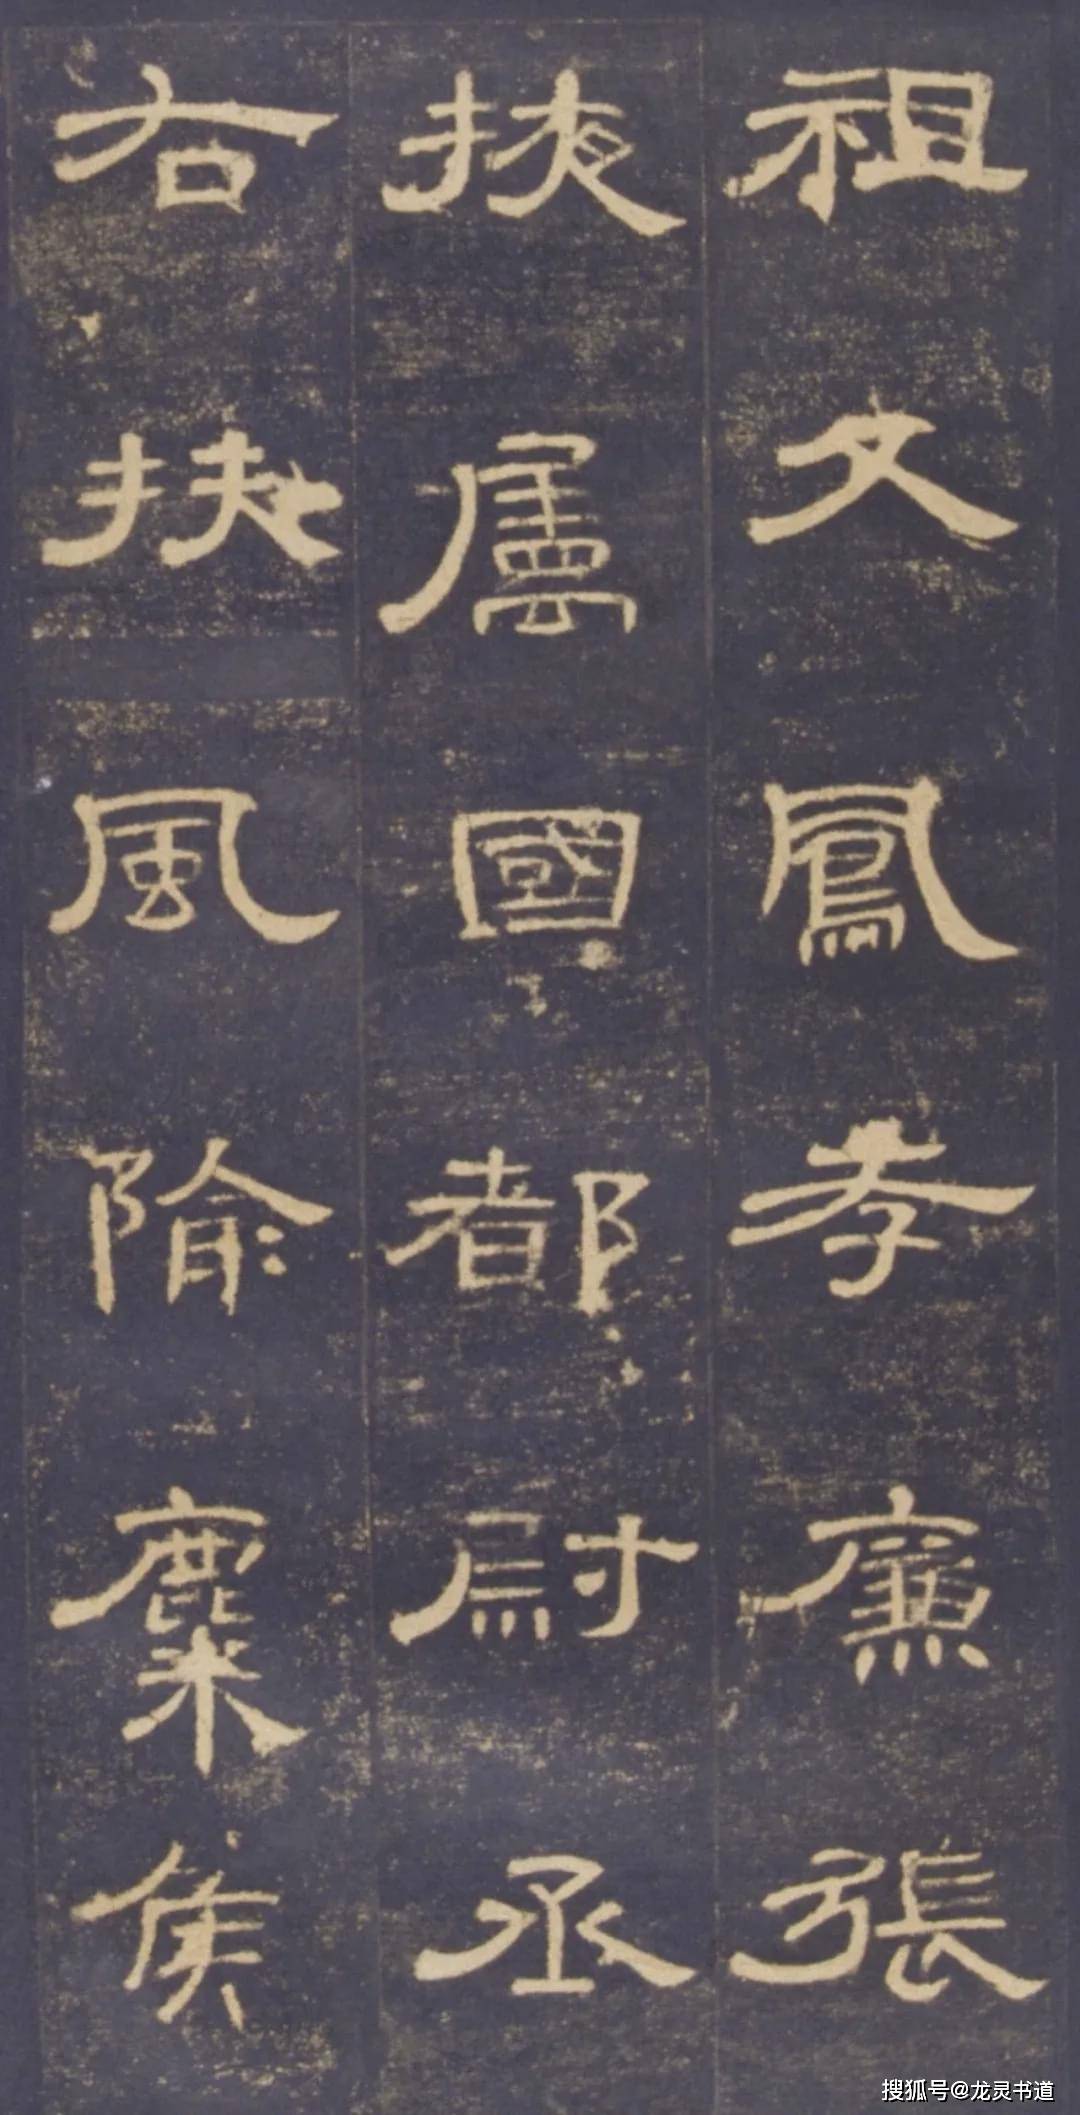 祖文鳳孝廉張
掖屬國都尉丞
右扶風隃麋侯
搜狐号@龙灵书道